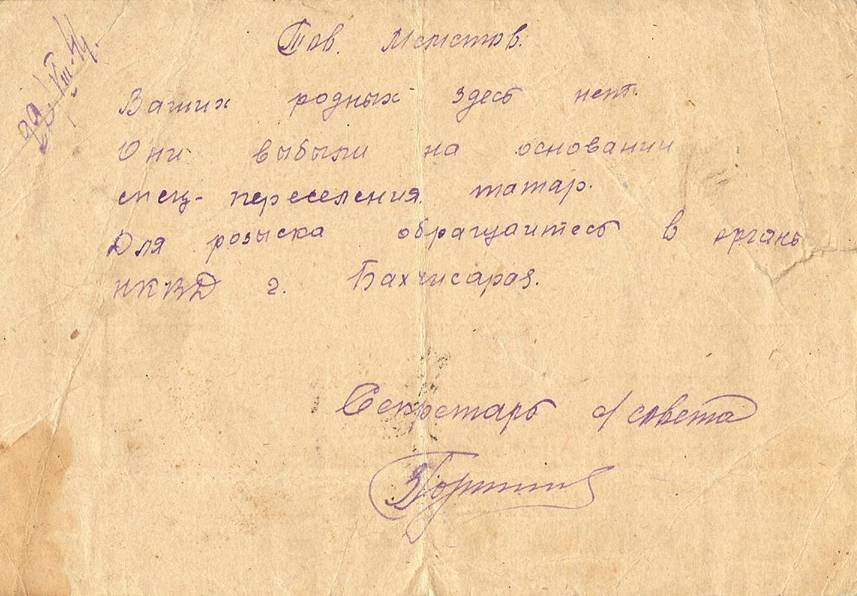 Тов. Меметов.
29/VIII-44.
Ваших родных здесь нет.
Они выбыли на основании
спец- переселения татар.
Для розыска обращайтесь в органы
НКВД г. Бахчисарая.
Секретарь с/совета